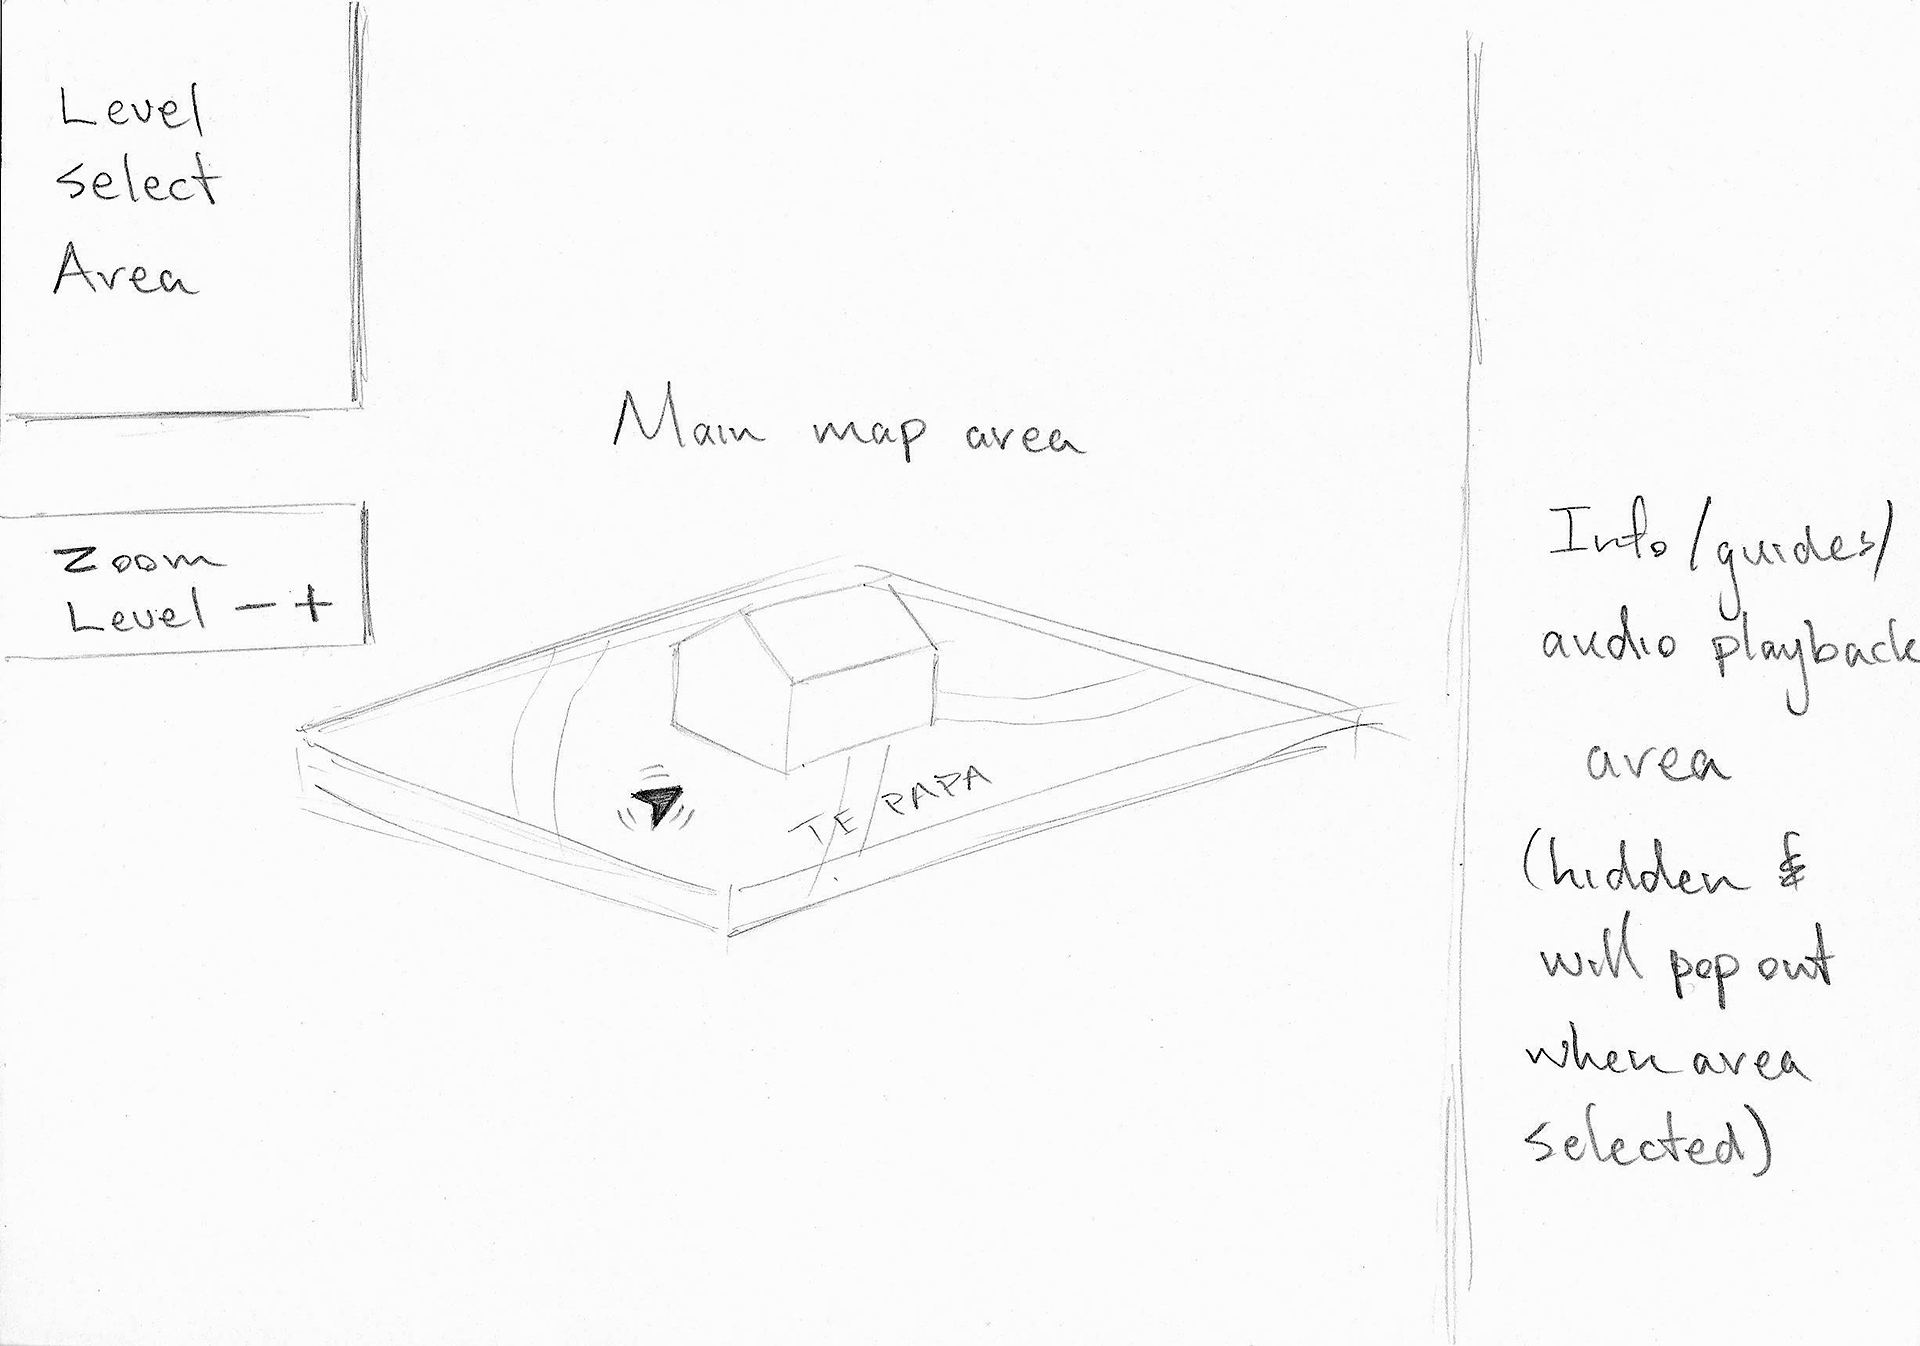 Level
select
Area
Zoom
Level - +
Main map area
TE PAPA
Info/guides/
audio playback
area
(hidden &
will pop out
when area
selected)